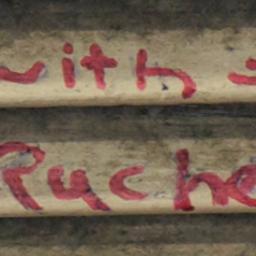 with
Ruche